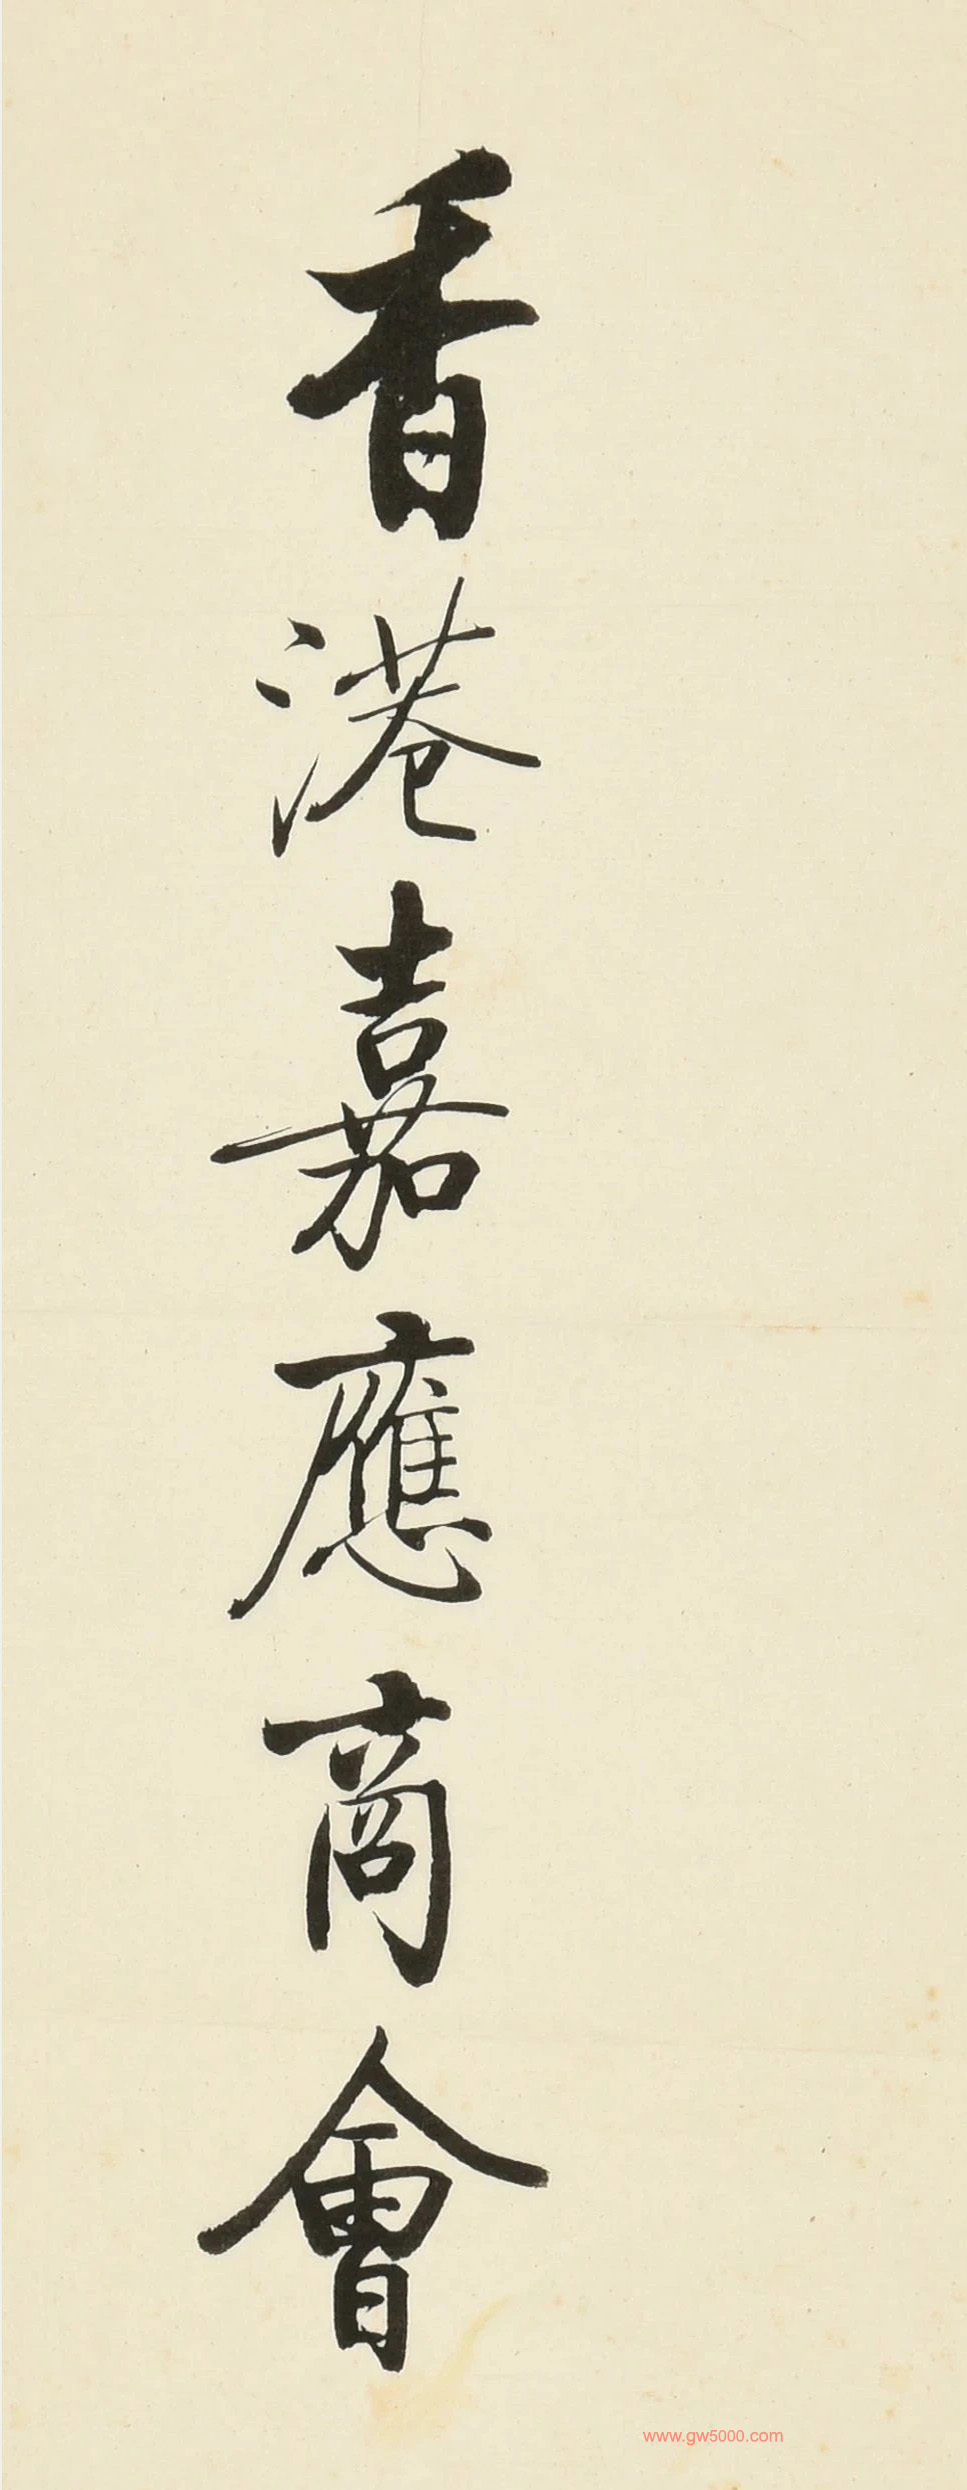 香港嘉應商會
www.gw5000.com